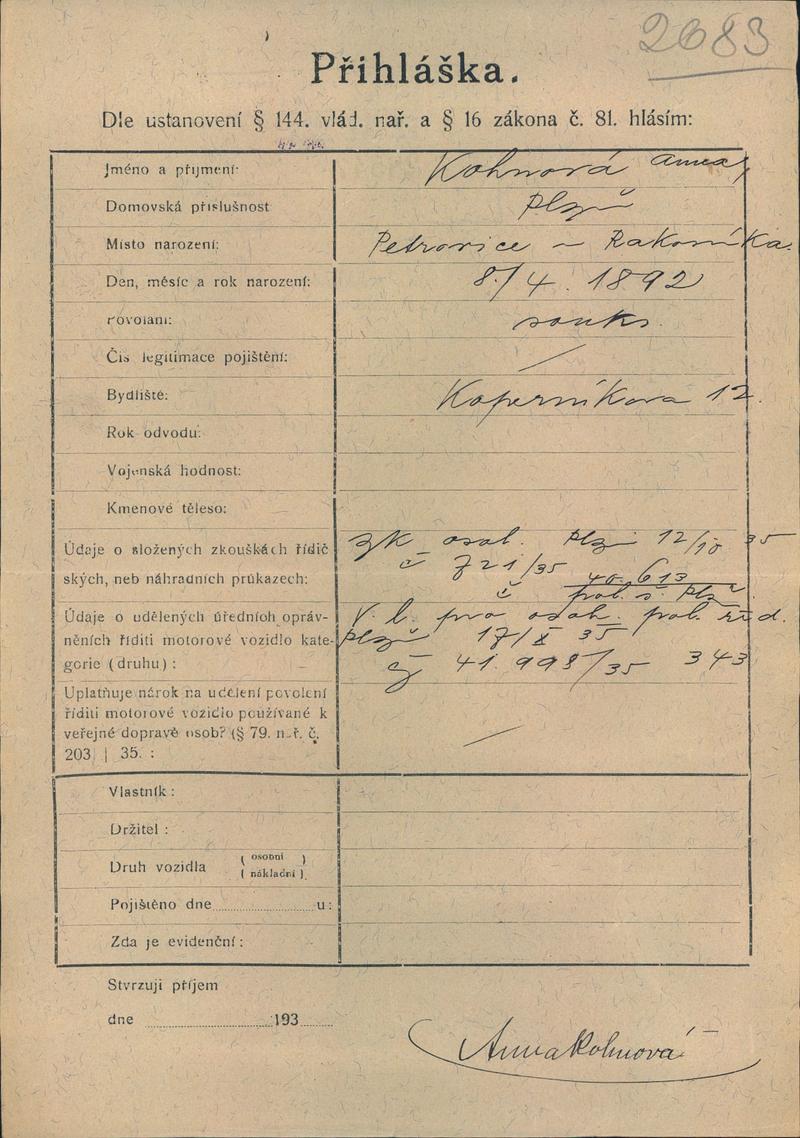 2683
Přihláška.
Dle ustanovení § 144. vlád. nař. a § 16 zákona č. 81. hlásím:
Jméno a přijmení: Kohnová Anna
Domovská příslušnost Plzň
Místo narození: Petrovice – Rakovníka.
Den, měsíc a rok narození: 8/4. 1892
Povolání: soukr.
Čís legitimace pojištění: /
Bydliště: Koperníkova 12.
Rok odvodu:
Vojenská hodnost:
Kmenové těleso:
Údaje o složených zkouškách řidič
ských, neb náhradních průkazech:
zk. osob. Plzň 12/10 35
č 721/35 40.613
č pol. ř. Plzň
Údaje o udělených úředních opráv-
něních říditi motorové vozidlo kate-
gorie (druhu) :
V. l. pro osob. pol. řed.
Plzň 17/X 35
čj 41.998/35 343
Uplatňuje nárok na udělení povolení
říditi motorové vozidlo používané k
veřejné dopravě osob? (§ 79. n.ř. č.
203 | 35. : /
Vlastník :
Držitel :
Druh vozidla ( osobní )
( nákladní )
Pojištěno dne u:
Zda je evidenční :
Stvrzuji příjem
dne 193
Anna Kohnová